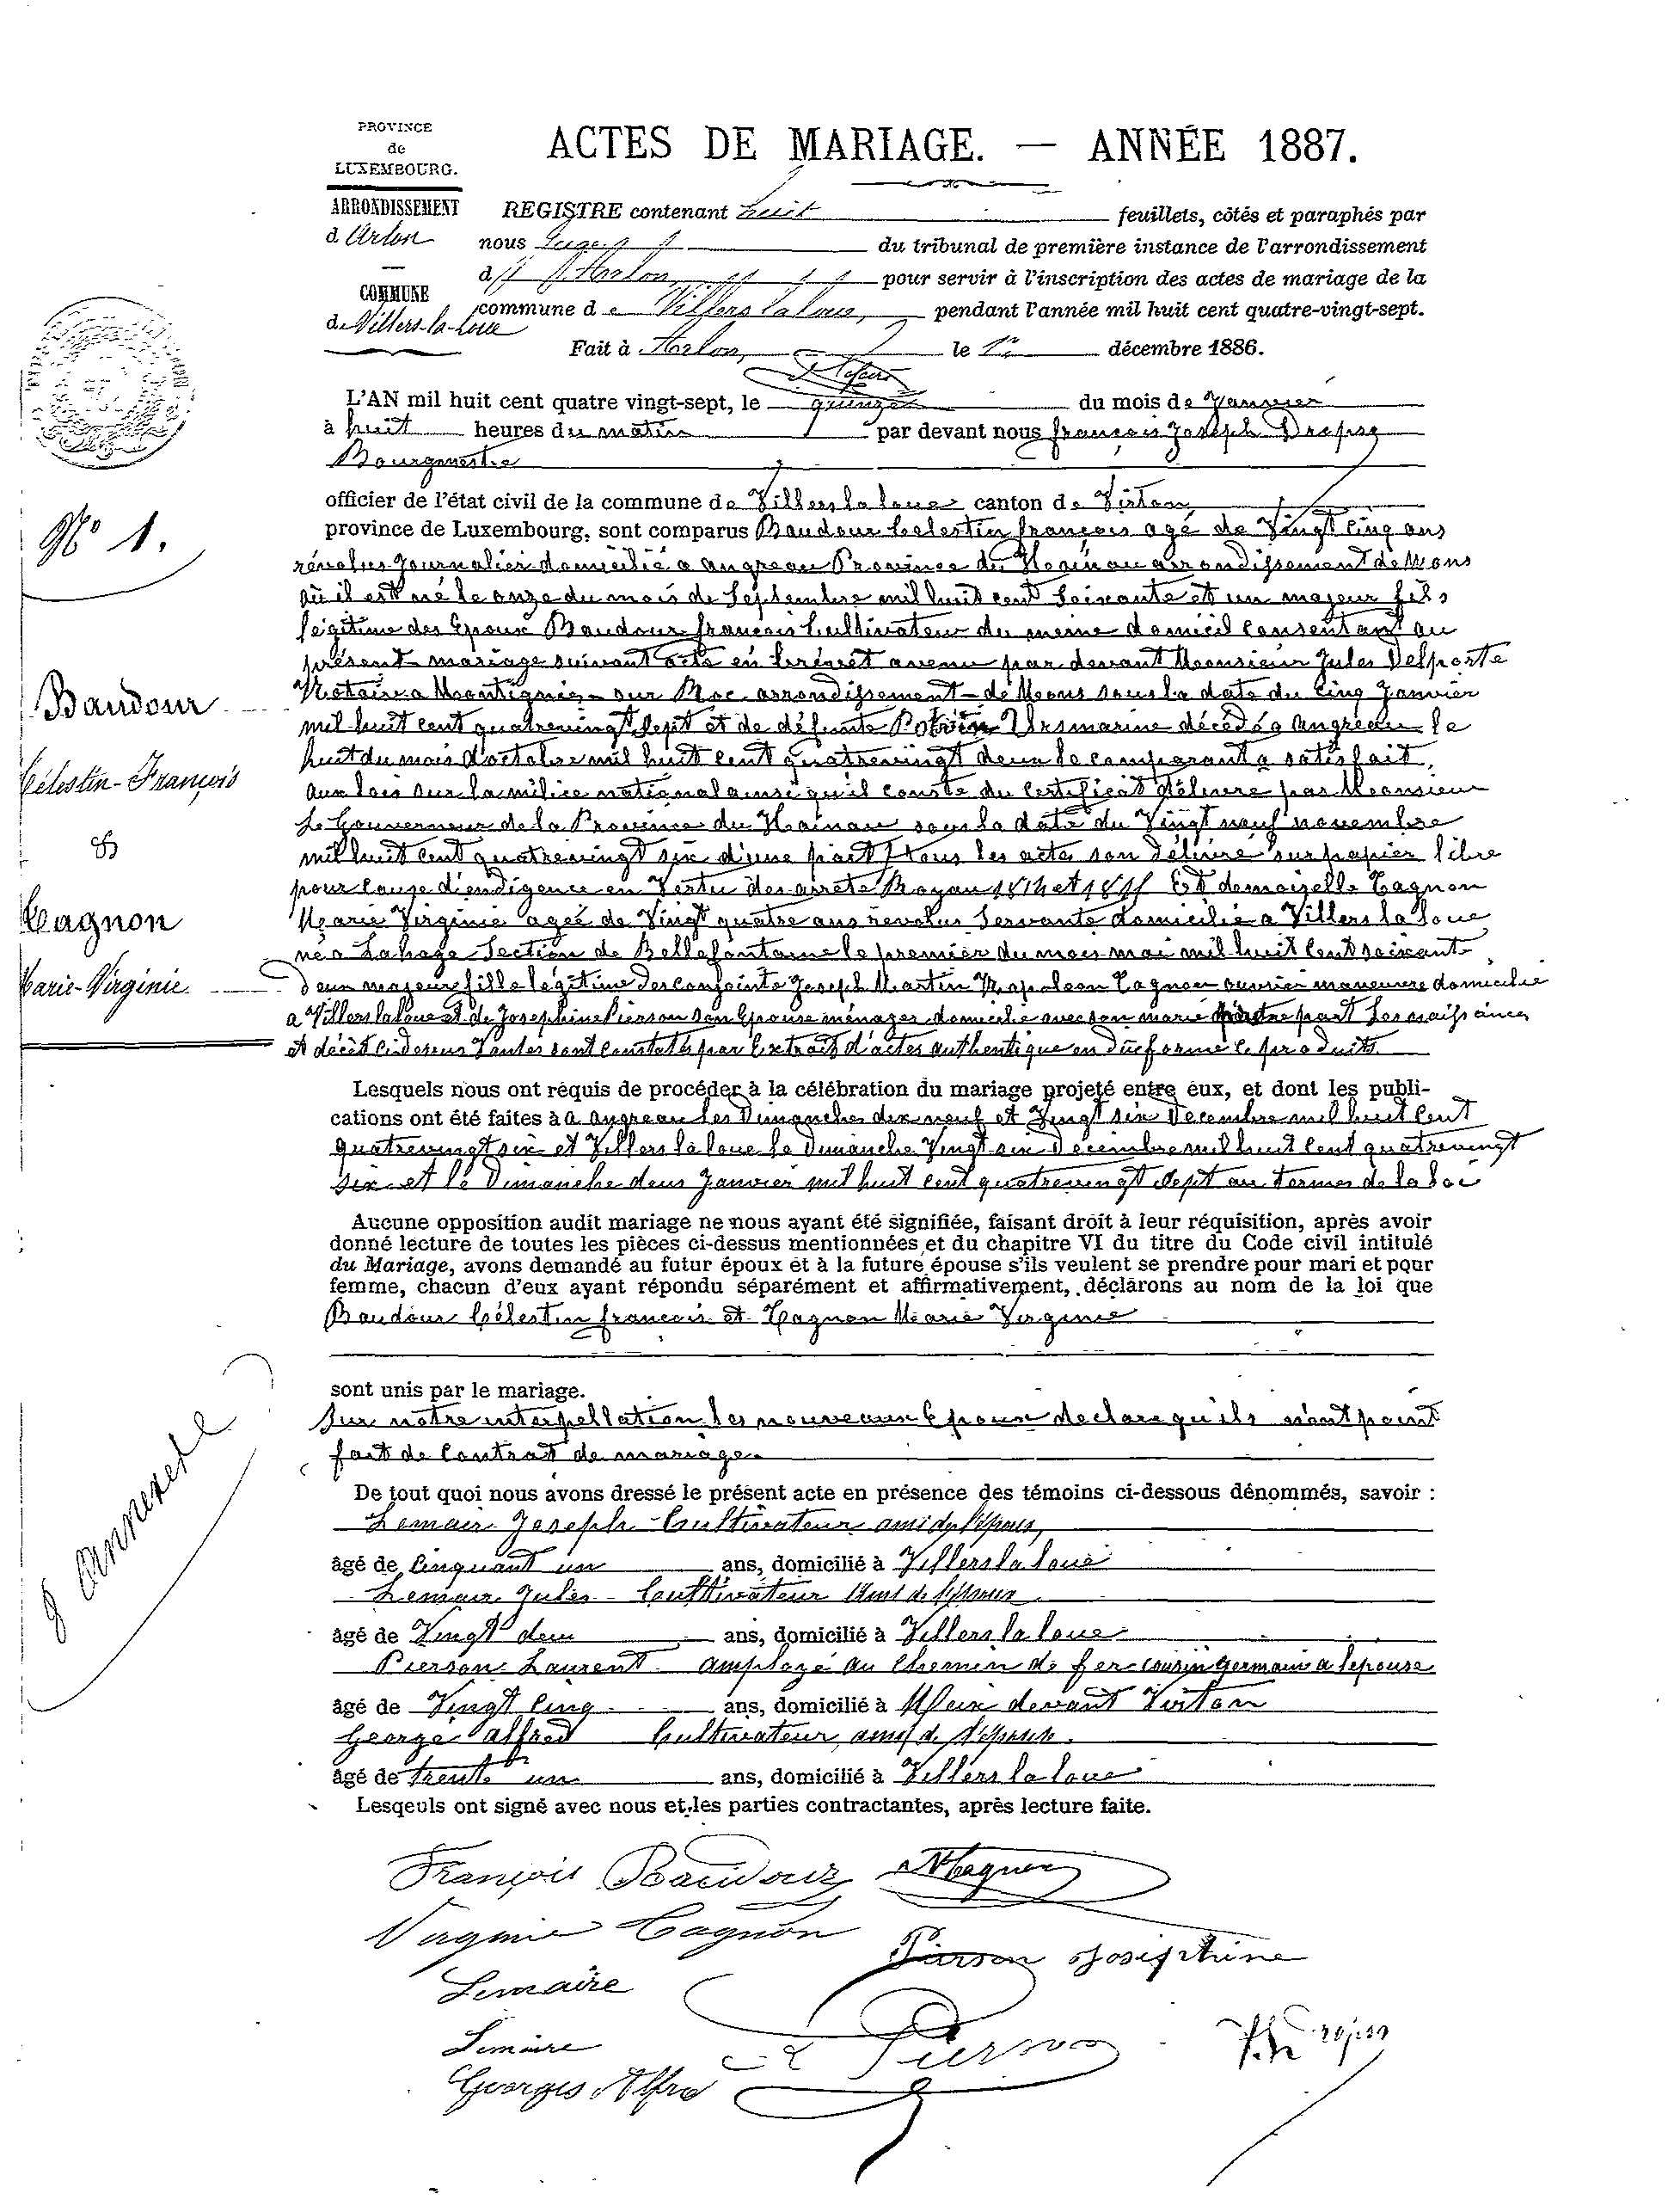 PROVINCE
de
LUXEMBOURG.
ARRONDISSEMENT
d'Arlon
COMMUNE
de Villers-la-Loue
ACTES DE MARIAGE. — ANNÉE 1887.
REGISTRE contenant huit feuillets, côtés et paraphés par
nous Juge du tribunal de première instance de l'arrondissement
d'Arlon, pour servir à l'inscription des actes de mariage de la
commune de Villers la loue, pendant l'année mil huit cent quatre-vingt-sept.
Fait à Arlon, le 1er décembre 1886.
L'AN mil huit cent quatre vingt-sept, le quinze du mois de Janvier
à huit heures du matin par devant nous françois Joseph
Bourgmestre
officier de l'état civil de la commune de Villers la loue canton de Virton,
province de Luxembourg, sont comparus Baudour Celestin françois agé de Vingt Cinq ans
révolus Journalier domicilié a angreau Province du Hainau arrondissement de Mons
où il est né le onze du mois de Septembre mil huit cent Soixante et un majeur fils
légitime des Epoux Baudour françois Cultivateur du meme domicil consentant au
présent mariage suivant acte en brévet avenu par devant Monsieur Jules Delporte
Notaire a Montignie-sur Roc arrondissement de Mons sous la date du Cinq Janvier
mil huit cent quatrevingt sept et de défunte Ursmarine décédé a angreau le
huit du mois d'octobre mil huit cent quatrevingt deux le comparant a satisfait
aux lois sur la milice national ainsi qu'il conste du Certificat délivré par Monsieur
Le Gouverneur de la Province du Hainau sous la date du Vingt neuf novembre
mil huit cent quatrevingt six d'une part tous les actes son délivré sur papier libre
pour cause d'endigence en Vertu des arreté Royau Et demoizelle Cagnon
Marie Virginie agée de Vingt quatre ans révolus Servante domicilié a Villers la loue
né a Lahage Section de Bellefontaine le premier du mois mai mil huit cent soixante
deux majeure fille légitime des conjoints Joseph Martin Napoleon Cagnon ouvrier maneuvre domicilié
a Villers la loue et de Josephine Pierson son Epouse ménager domicilié avec son marie d'autre part Les naissances
et décèt ci dessus Toutes sont constatés par Extrait d'actes authentique en due forme produits
Lesquels nous ont requis de procéder à la célébration du mariage projeté entre eux, et dont les publi-
cations ont été faites à a angreau les Dimanches dix neuf et Vingt six Decembre mil huit Cent
quatrevingt six et Villers la loue le Dimanche Vingt six Décembre mil huit Cent quatrevingt
six et le Dimanche deux Janvier mil huit cent quatrevingt sept au termes de la loi
Aucune opposition audit mariage ne nous ayant été signifiée, faisant droit à leur réquisition, après avoir
donné lecture de toutes les pièces ci-dessus mentionnées et du chapitre VI du titre du Code civil intitulé
du Mariage, avons demandé au futur époux et à la future épouse s'ils veulent se prendre pour mari et pour
femme, chacun d'eux ayant répondu séparément et affirmativement, déclarons au nom de la loi que
Baudour Célestin francois et Cagnon Marie Virginie
sont unis par le mariage.
Sur notre interpellation les nouveaux Epoux declare qu'ils n'ont point
fait de Contrat de mariage.
De tout quoi nous avons dressé le présent acte en présence des témoins ci-dessous dénommés, savoir :
Lemair Joseph Cultivateur ami de l'époux,
âgé de Cinquant un ans, domicilié à Villers la loue
Lemair Jules Cultivateur ami de l'époux
âgé de Vingt deu ans, domicilié à Villers la loue
Pierson Laurent amployé au Chemin de fer cousin germain a l'epouse
âgé de Vingt Cinq ans, domicilié à Meix devant Virton
George alfred Cultivateur, ami de l'épouse.
âgé de trente un ans, domicilié à Villers la loue
Lesqeuls ont signé avec nous et les parties contractantes, après lecture faite.
François Baudour N Cagnon
Virginie Cagnon
Pierson Josephine
Lemaire
Lemaire
L Pierson
Georges Alfre
No 1.
Baudour
Célestin-François
&
Cagnon
Marie-Virginie
8 annexes